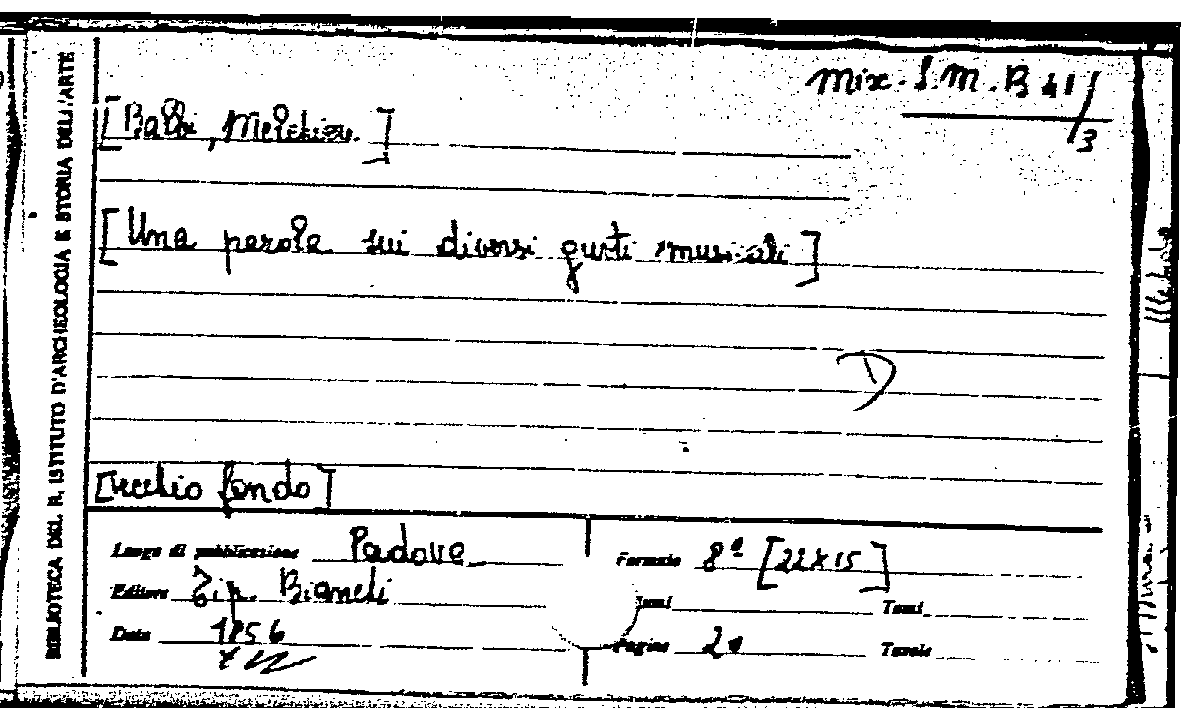 Misc. S.M. B 41/3
[Balbi, Melchiore]
[Una parola sui diversi gusti musicali]
[vecchio fondo]
Luogo di pubblicazione Padova
Formato 8º [22x15]
Editore Tip. Bianchi
Tomi Tomi
Data 1856
Pagine
Tavole
BIBLIOTECA DEL R. ISTITUTO D'ARCHEOLOGIA E STORIA DELL'ARTE